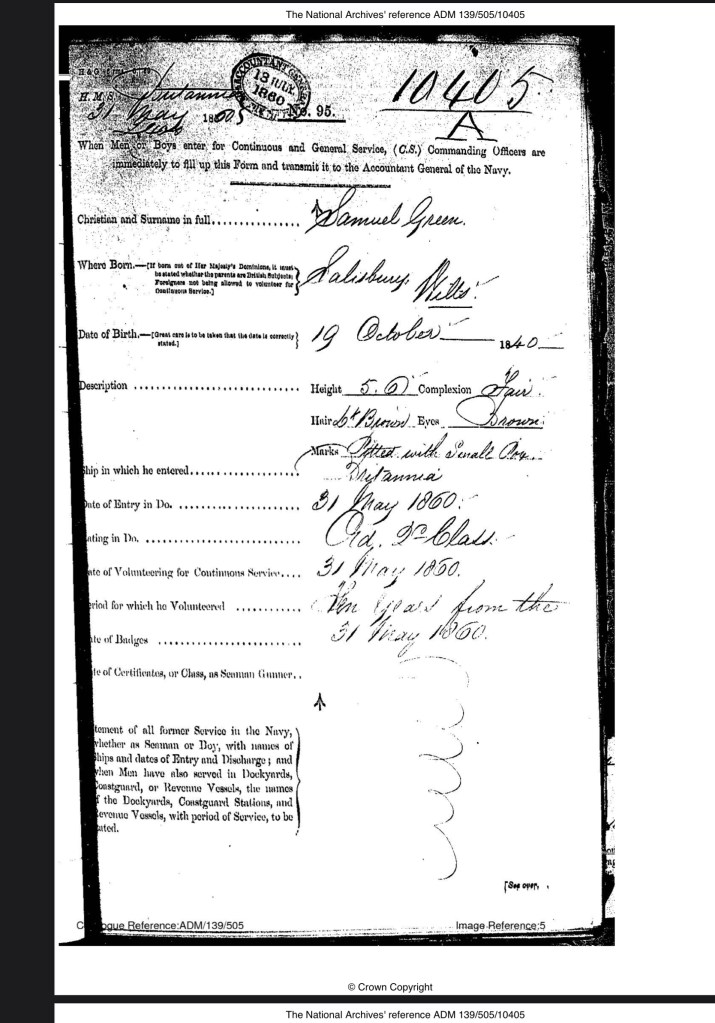 The National Archives' reference ADM 139/505/10405
ACCOUNTANT GENERAL
13 JULY
1860
10405
A
H.M.S. Britannia
31 May 1860
No. 95.
When Men or Boys enter for Continuous and General Service, (C.S.) Commanding Officers are
immediately to fill up this Form and transmit it to the Accountant General of the Navy.
Christian and Surname in full............... Samuel Green.
Where Born.—[If born out of Her Majesty's Dominions, it must
be stated whether the parents are British Subjects;
Foreigners not being allowed to volunteer for
Continuous Service.]
Salisbury, Wilts.
Date of Birth.—[Great care is to be taken that the date is correctly
stated.]
19 October 1840
Description ............................ Height 5.6 Complexion Fair.
Hair Lt Brown Eyes Brown.
Marks Pitted with Small Pox.
hip in which he entered.................. Britannia
ate of Entry in Do. .................... 31 May 1860.
ating in Do. .......................... Ord. 2d Class.
ate of Volunteering for Continuous Service.... 31 May 1860.
eriod for which he Volunteered ........... Ten Years from the
31 May 1860.
te of Badges ........................
te of Certificates, or Class, as Seaman Gunner..
tement of all former Service in the Navy,
whether as Seaman or Boy, with names of
hips and dates of Entry and Discharge; and
when Men have also served in Dockyards,
Coastguard, or Revenue Vessels, the names
f the Dockyards, Coastguard Stations, and
evenue Vessels, with period of Service, to be
ated.
[See over.
Catalogue Reference:ADM/139/505 Image Reference:5
© Crown Copyright
The National Archives' reference ADM 139/505/10405